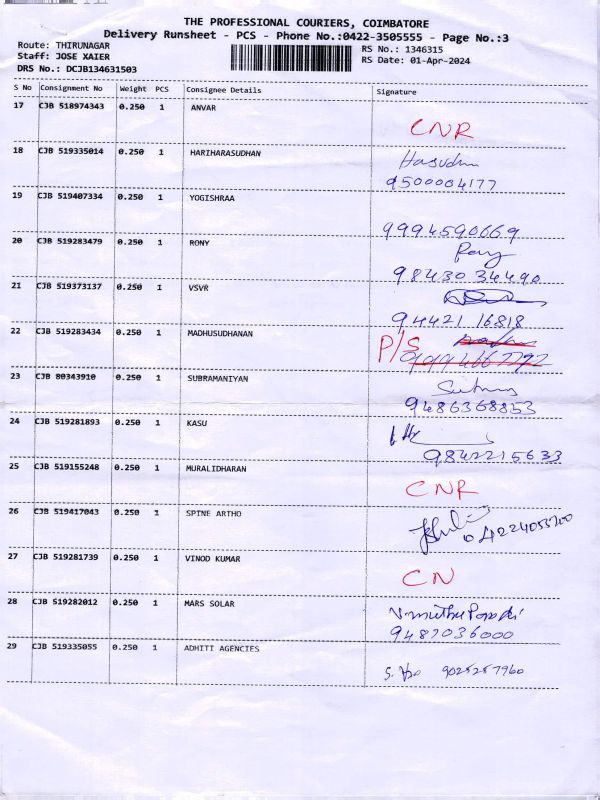 THE PROFESSIONAL COURIERS, COIMBATORE
Delivery Runsheet - PCS - Phone No.:0422-3505555 - Page No.:3
Route: THIRUNAGAR
Staff: JOSE XAIER
DRS No.: DCJB134631503
RS No.: 1346315
RS Date: 01-Apr-2024
S No Consignment No Weight PCS Consignee Details Signature
17 CJB 518974343 0.250 1 ANVAR
CNR
18 CJB 519335014 0.250 1 HARIHARASUDHAN
9500004177
19 CJB 519407334 0.250 1 YOGISHRAA
9994590669
20 CJB 519283479 0.250 1 RONY
Rony
98430 34490
21 CJB 519373137 0.250 1 VSVR
94421 16818
22 CJB 519283434 0.250 1 MADHUSUDHANAN
P/S
23 CJB 80343910 0.250 1 SUBRAMANIYAN
9486368853
24 CJB 519281893 0.250 1 KASU
9842215633
25 CJB 519155248 0.250 1 MURALIDHARAN
CNR
26 CJB 519417043 0.250 1 SPINE ARTHO
27 CJB 519281739 0.250 1 VINOD KUMAR
CN
28 CJB 519282012 0.250 1 MARS SOLAR
9487036000
29 CJB 519335055 0.250 1 ADHITI AGENCIES
9025257960